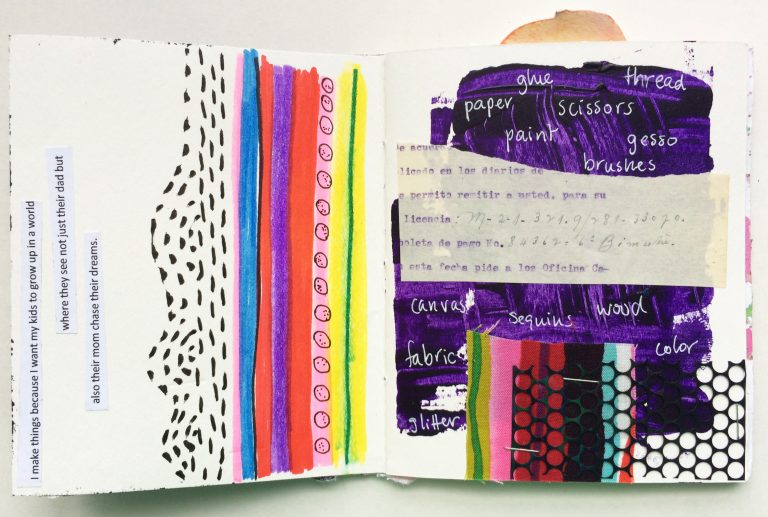 I make things because I want my kids to grow up in a world
where they see not just their dad but
also their mom chase their dreams.
glue thread
paper scissors
paint gesso
brushes
de acuer
licado en los diarios de
permito remitir a usted, para su
licencia: M-21-321.9/281-33070.
boleta de pago No. 84362-6º Bim
esta fecha pide a los Oficina Ca-
canvas sequins wood
fabric color
glitter